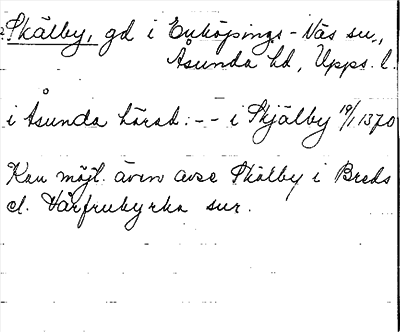 Skälby, gd i Enköpings-Näs sn.,
Åsunda hd, Upps. l.
i Åsunda härad: -- i Skjälby 19/1 1370
Kan möjl. även avse Skälby i Breds
el. Vårfrukyrka snr.